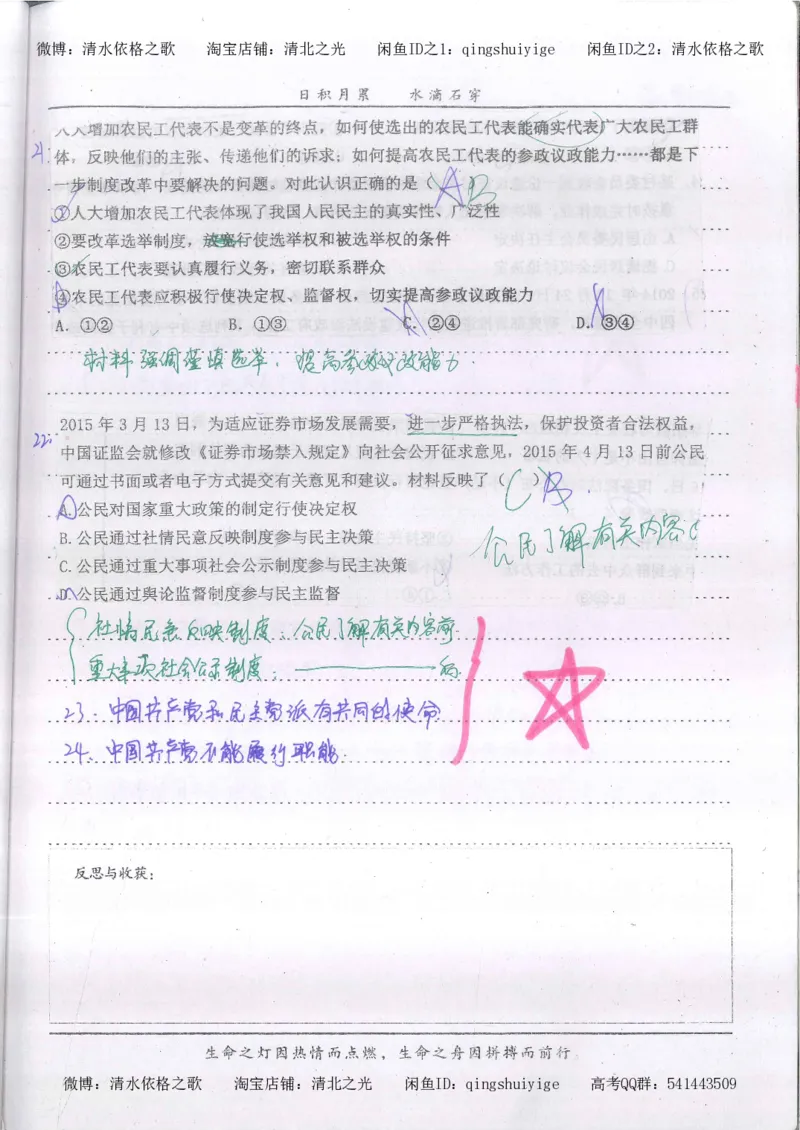 微博：清水依格之歌 淘宝店铺：清北之光 闲鱼ID之1：qingshuiyige 闲鱼ID之2：清水依格之歌
日积月累 水滴石穿
人大增加农民工代表不是变革的终点，如何使选出的农民工代表能确实代表广大农民工群
21.
体，反映他们的主张、传递他们的诉求；如何提高农民工代表的参政议政能力……都是下
一步制度改革中要解决的问题。对此认识正确的是（ A B
①人大增加农民工代表体现了我国人民民主的真实性、广泛性
②要改革选举制度，放宽行使选举权和被选举权的条件
③农民工代表要认真履行义务，密切联系群众
④农民工代表应积极行使决定权、监督权，切实提高参政议政能力
A. ①② B. ①③ C. ②④ D. ③④
材料强调谨慎选举，提高参政议政能力．
22.
2015 年 3 月 13 日，为适应证券市场发展需要，进一步严格执法，保护投资者合法权益，
中国证监会就修改《证券市场禁入规定》向社会公开征求意见，2015 年 4 月 13 日前公民
可通过书面或者电子方式提交有关意见和建议。材料反映了（ ）
C B.
A. 公民对国家重大政策的制定行使决定权
B. 公民通过社情民意反映制度参与民主决策
公民了解有关内容
C. 公民通过重大事项社会公示制度参与民主决策
D. 公民通过舆论监督制度参与民主监督
社情民意反映制度：公民了解有关内容前
重大事项社会公示制度：————后
23. 中国共产党和民主党派有共同的使命
24、中国共产党不能履行职能
反思与收获：
生命之灯因热情而点燃，生命之舟因拼搏而前行
微博：清水依格之歌 淘宝店铺：清北之光 闲鱼ID：qingshuiyige 高考QQ群：541443509